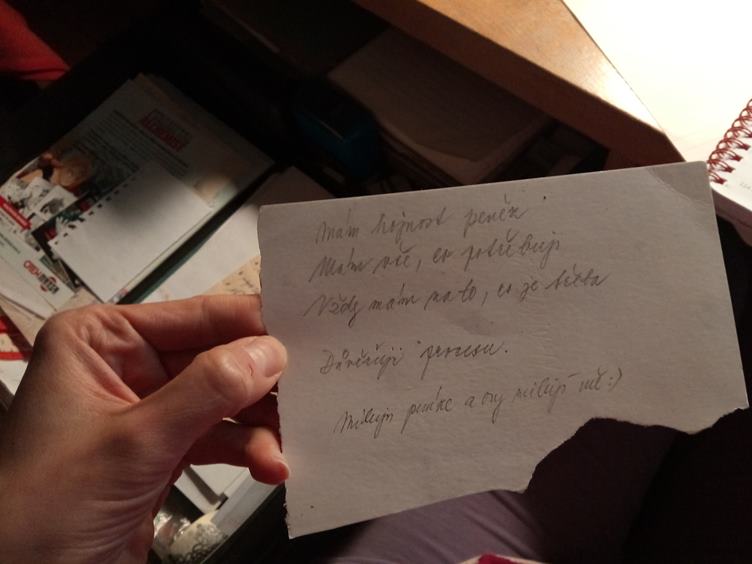 Mám hojnost peněz
Mám vše, co potřebuji
Vždy mám na to, co je třeba
Důvěřuji procesu.
Miluji peníze a ony milují mě :)